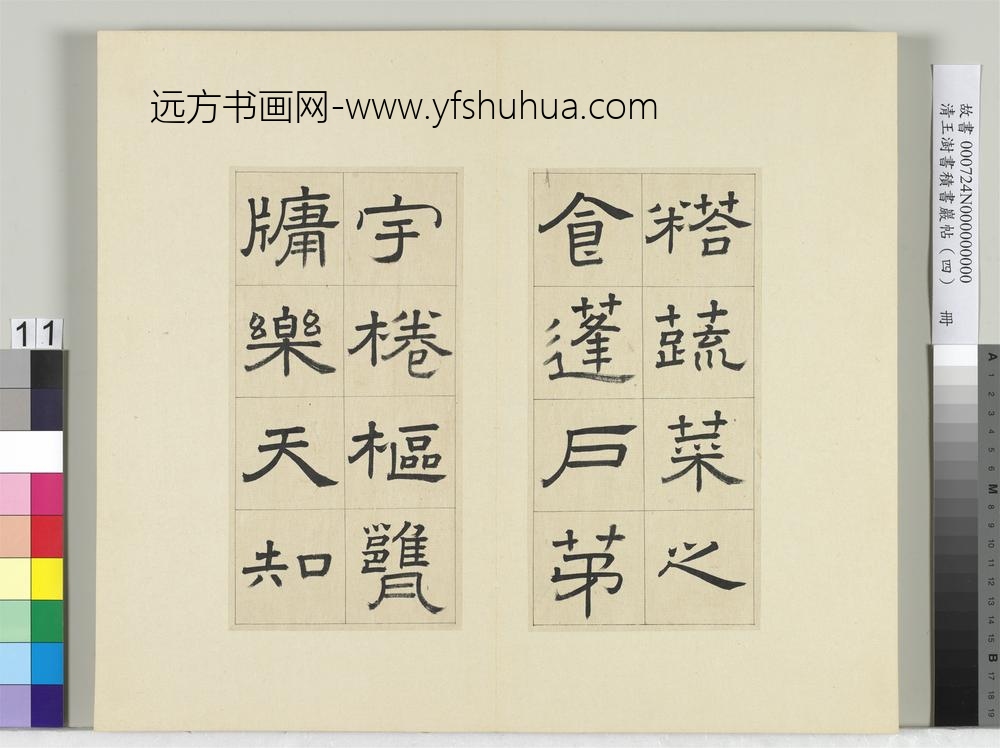 远方书画网-www.yfshuhua.com
蔬菜之
食蓬戶苐
宇棬樞甕
牖樂天知
故書 000724N000000000
清王澍書積書巖帖(四) 冊
11
A 1 2 3 4 5 6 M 8 9 10 11 12 13 14 15 B 17 18 19